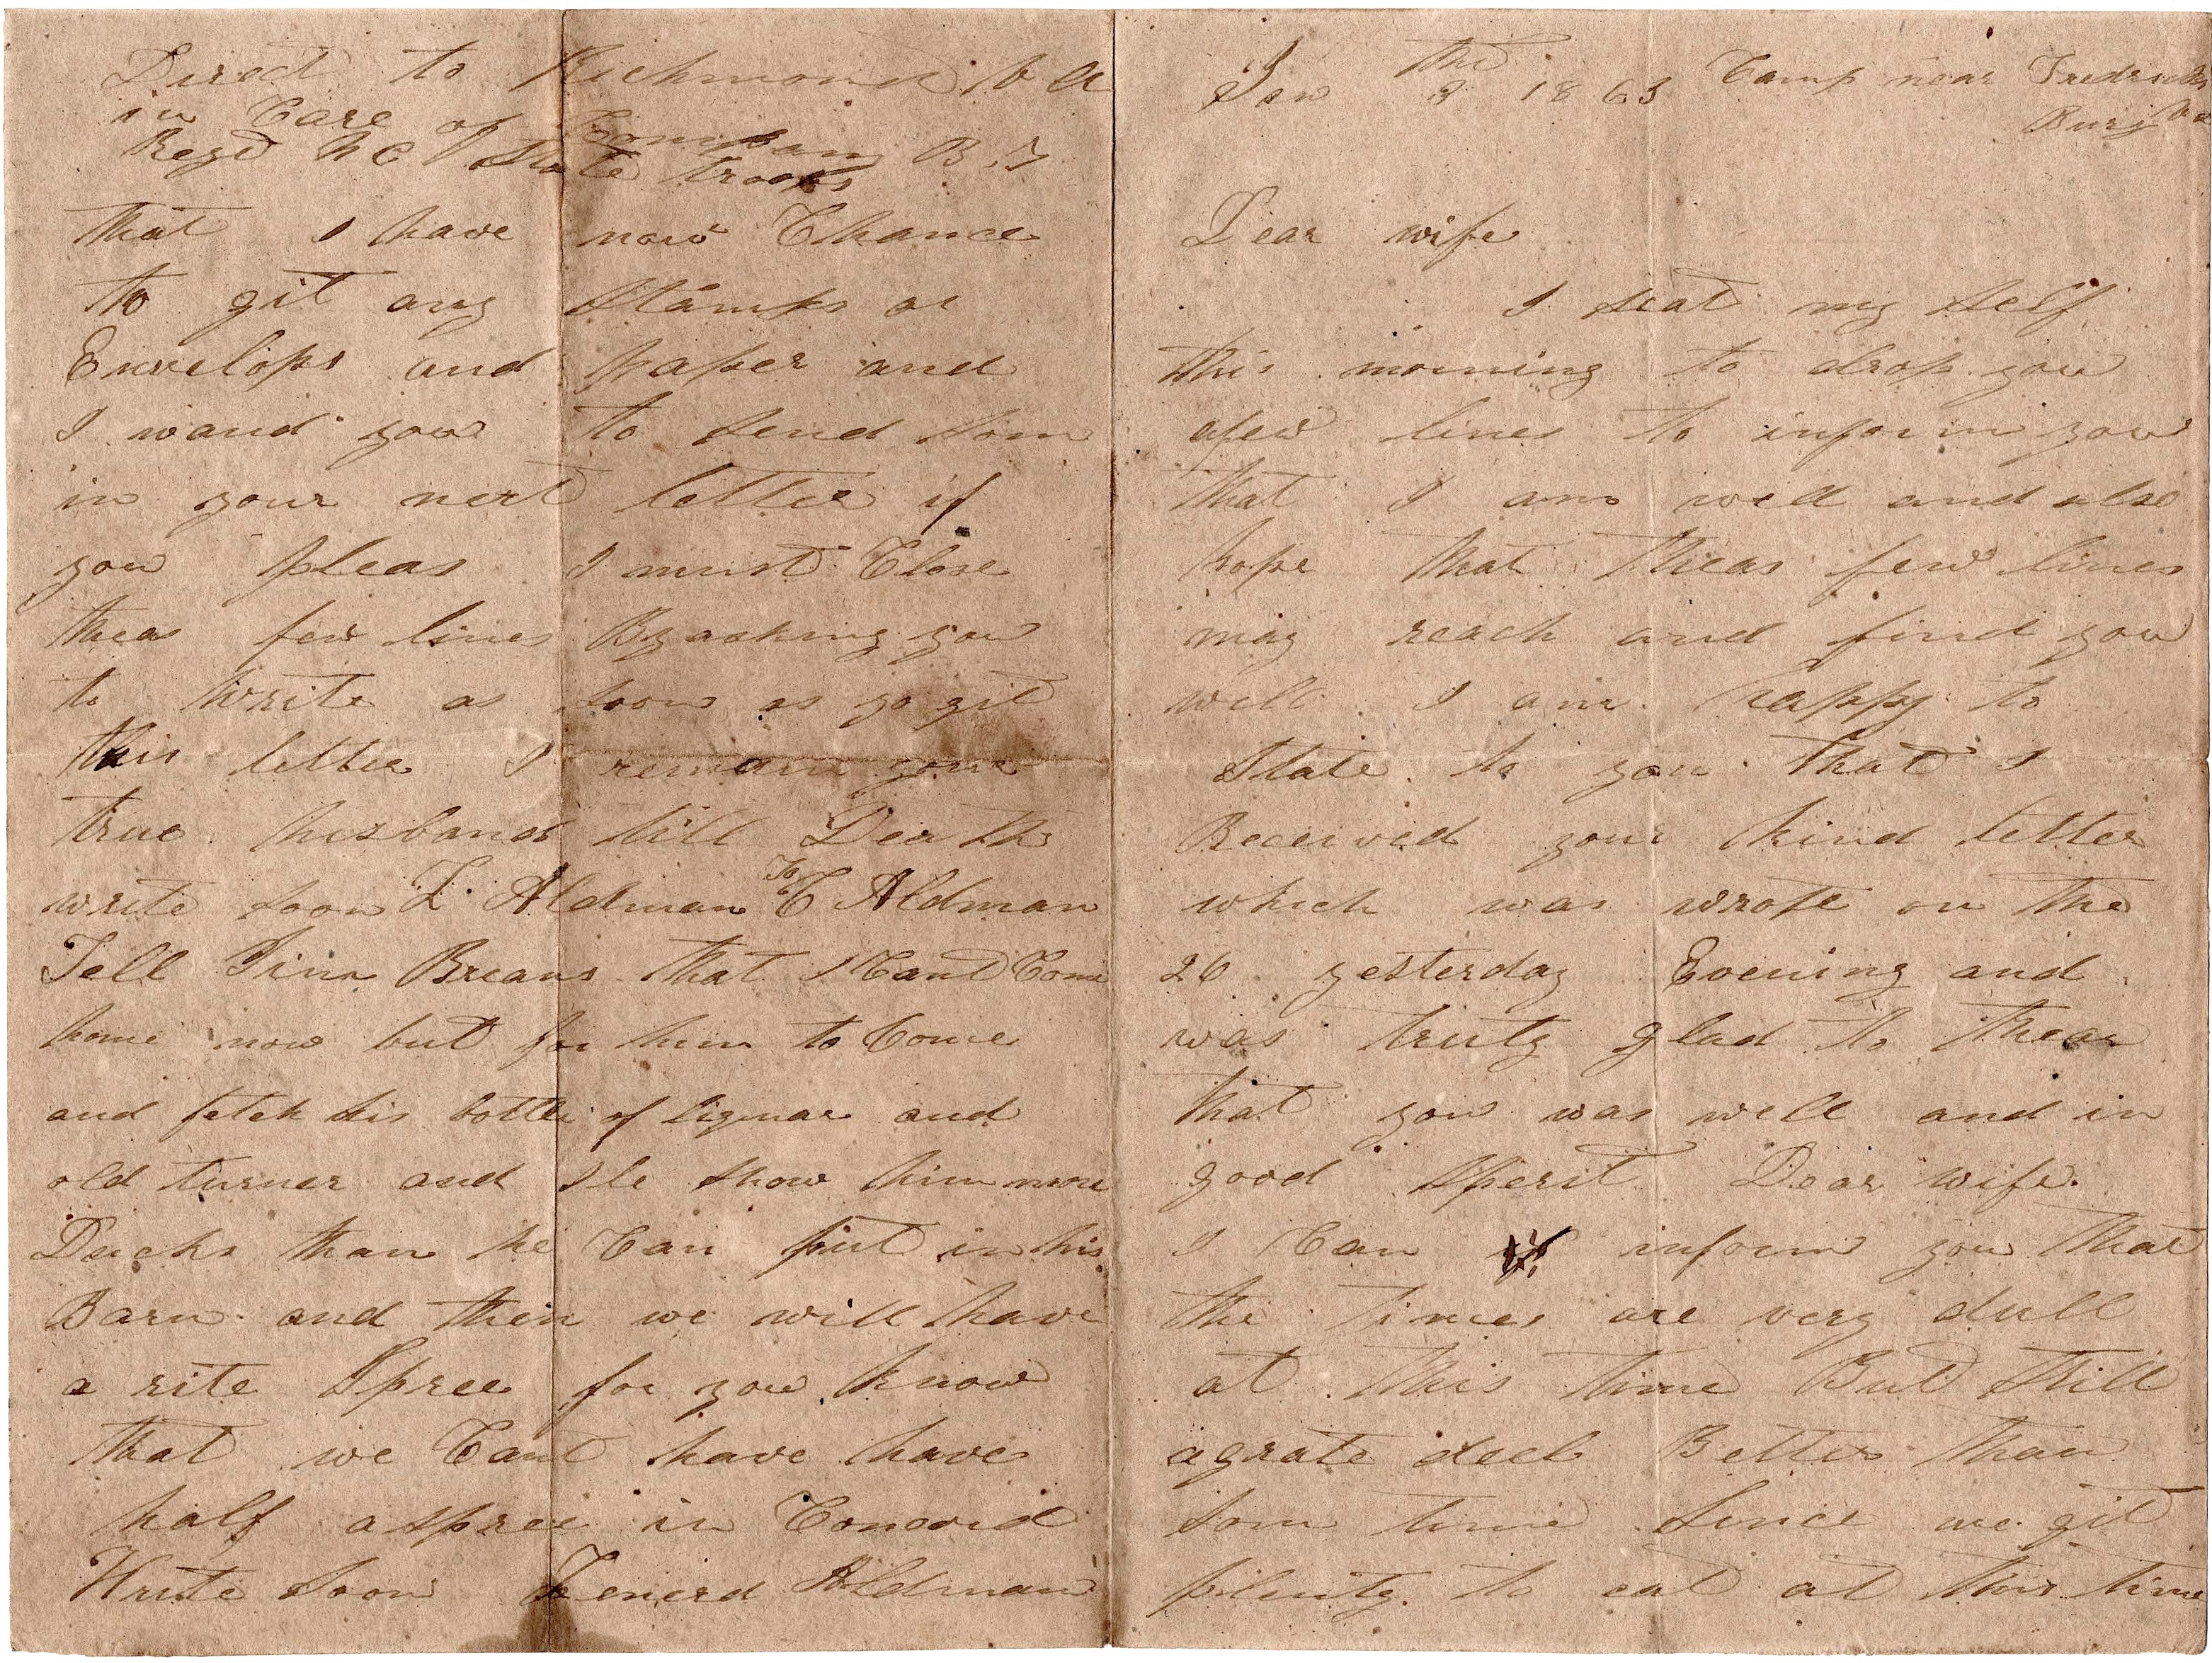 Jan the 3 1863 Camp near Fredricks
Burg Va
Dear wife
I seat my self
this morning to drop you
afew lines to inform you
that I am well and also
hope that theas few lines
may reach and find you
well I am happy to
State to you that I
Received your kind letter
which was wrote on the
26 yesterday Evening and
was truly glad to thear
that you was well and in
good Sperit Dear wife
I Can inform you that
the times are very dull
at this time But Still
agrate deel Better than
som time Since we git
plenty to eat at this time
Direct to Richmond Va
in Care of Company B. 7
Regt N C State troops
that I have now Chance
to git any Stamps or
Envelops and paper and
I wand you to send som
in your next letter if
you pleas I must Close
theas few lines By asking you
to write as soon as yo git
this letter I remain your
true husband till Death
write soon L Aldman To C Aldman
Tell Breans that I Cant Come
home now but for him to Come
and fetch his bottle of liquar and
old turner and Ile show him more
Ducks than he Can put in his
Barn and then we will have
a rite Spree for you know
that we Cant have have
half aspree in Concord
Write Soon Lenerd Aldman